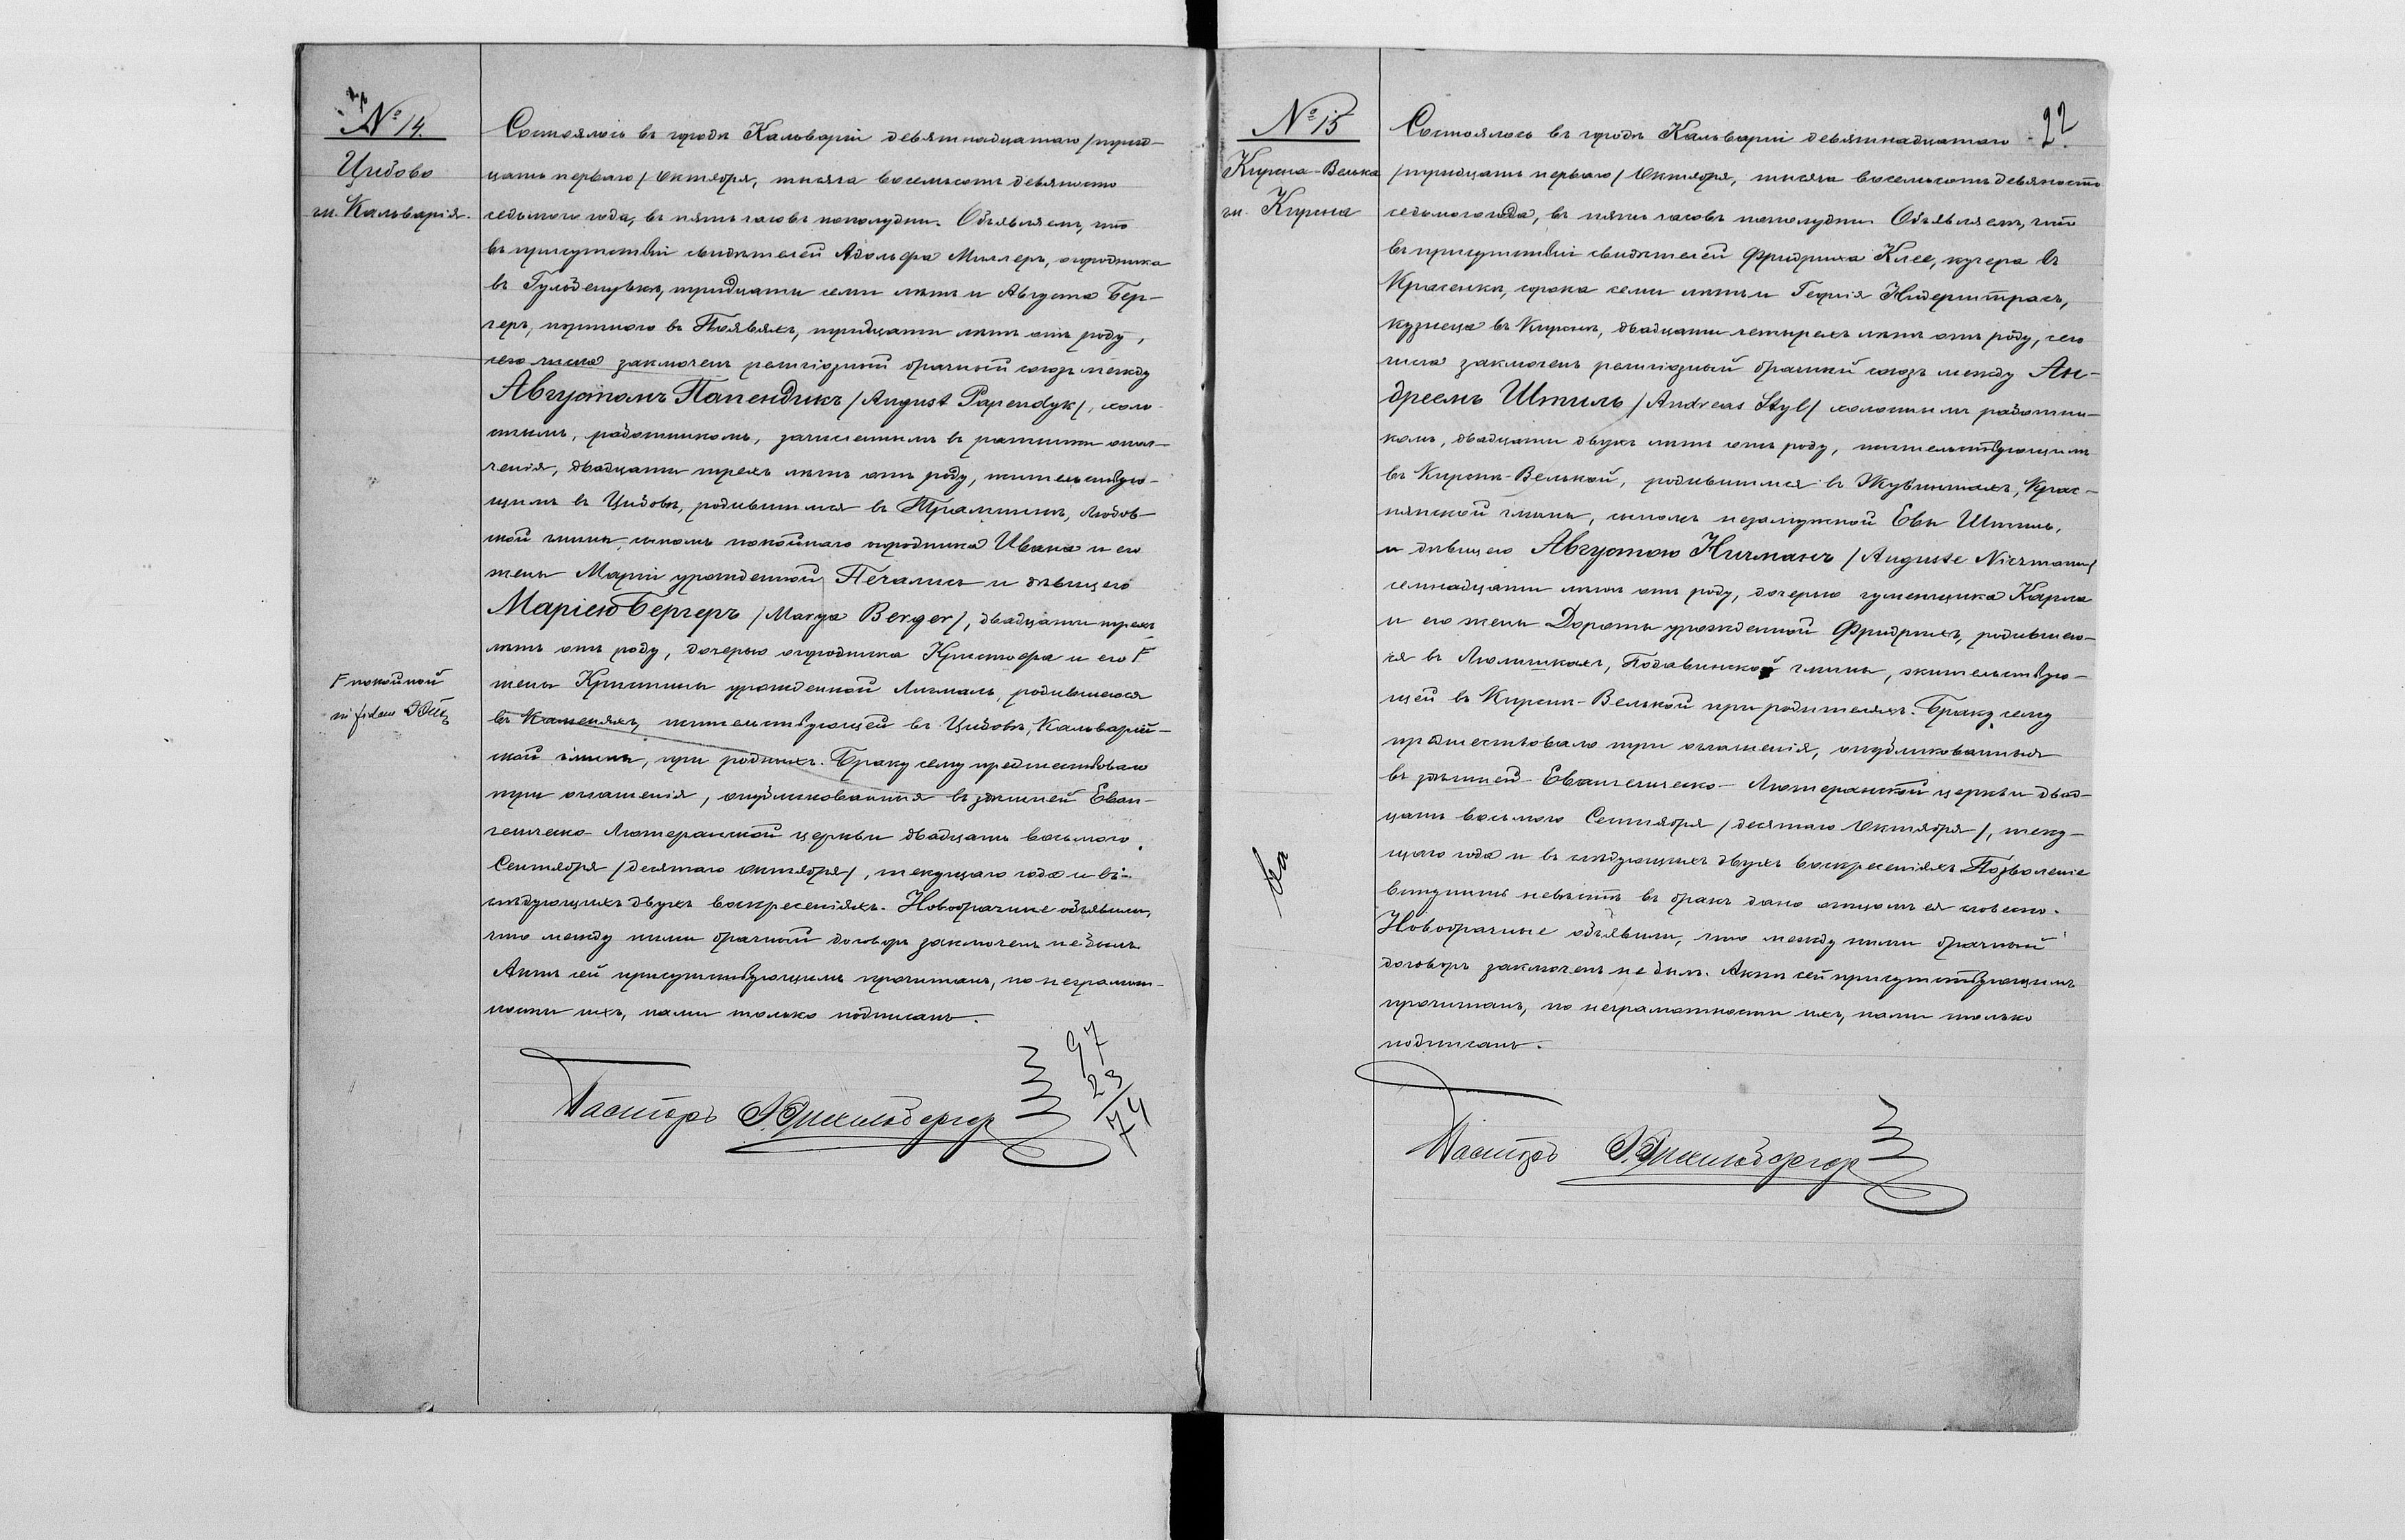 № 14.
Цидово
гм. Кальварія.
Состоялось въ городѣ Кальваріи девятнадцатаго /трид-
цать перваго/ Октября, тысяча восемьсотъ девяносто
седьмого года, въ пять часовъ пополудни. Объявляемъ, что
въ присутствіи свидѣтелей Адольфа Миллеръ, огородника
въ тридцати семи лѣтъ и Августа Бер-
геръ, портного въ тридцати лѣтъ отъ роду,
сего числа заключенъ религіозный брачный союзъ между
Августомъ Папендикъ /August Papendyk/, холо-
стымъ, работникомъ, зачисленнымъ въ ратники опол-
ченія, двадцати трехъ лѣтъ отъ роду, жительствую-
щимъ въ Цидовѣ, родившимся въ Людов-
ской гминѣ, сыномъ покойнаго огородника Ивана и его
жены Маріи урожденной и дѣвицею
Маріею Бергеръ /Marya Berger/, двадцати трехъ
лѣтъ отъ роду, дочерью огородника Кристофа и его F
F покойной
in fidem
жены Кристины урожденной родившеюся
въ жительствующей въ Цидовѣ, Кальварій-
ской гмины, при родныхъ. Браку сему предшествовало
три оглашенія, опубликованныя въ здѣшней Еван-
гелическо-Лютеранской церкви двадцать восьмого
Сентября /десятаго октября/, текущаго года и въ
слѣдующихъ двухъ воскресеніяхъ. Новобрачные объявили,
что между ними брачный договоръ заключенъ не былъ.
Актъ сей присутствующимъ прочитанъ, по неграмот-
ности ихъ, нами только подписанъ.
97
23
74
Пасторъ
№ 15
Кирсна-Велька
гм. Кирсна
22.
Состоялось въ городѣ Кальваріи девятнадцатаго
/тридцать перваго/ Октября, тысяча восемьсотъ девяносто
седьмого года, въ пять часовъ пополудни. Объявляемъ, что
въ присутствіи свидѣтелей Фридриха Клее, кучера въ
сорока семи лѣтъ и Георгія Нидерштрасъ,
кузнеца въ Кирснѣ, двадцати четырехъ лѣтъ отъ роду, сего
числа заключенъ религіозный брачный союзъ между Ан-
дреемъ Штиль /Andreas Styl/ холостымъ работни-
комъ, двадцати двухъ лѣтъ отъ роду, жительствующимъ
въ Кирснѣ-Велькой, родившимся въ Жувинтахъ, Крас-
нянской гмины, сыномъ незамужной Евы Штиль,
и дѣвицею Августою Ничманъ /Auguste Niczmann/
семнадцати лѣтъ отъ роду, дочерью гуменщика Карла
и его жены Дороты урожденной Фридрихъ, родившею-
ся въ гмины, жительствую-
щей въ Кирснѣ-Велькой при родителяхъ. Браку сему
предшествовало три оглашенія, опубликованныя
въ здѣшней Евангелическо-Лютеранской церкви двад-
цать восьмого Сентября /десятаго Октября/, теку-
щаго года и въ слѣдующихъ двухъ воскресеніяхъ. Позволеніе
вступить невѣстѣ въ бракъ дано отцомъ ея словесно.
Новобрачные объявили, что между ними брачный
договоръ заключенъ не былъ. Актъ сей присутствующимъ
прочитанъ, по неграмотности ихъ, нами только
подписанъ.
Пасторъ